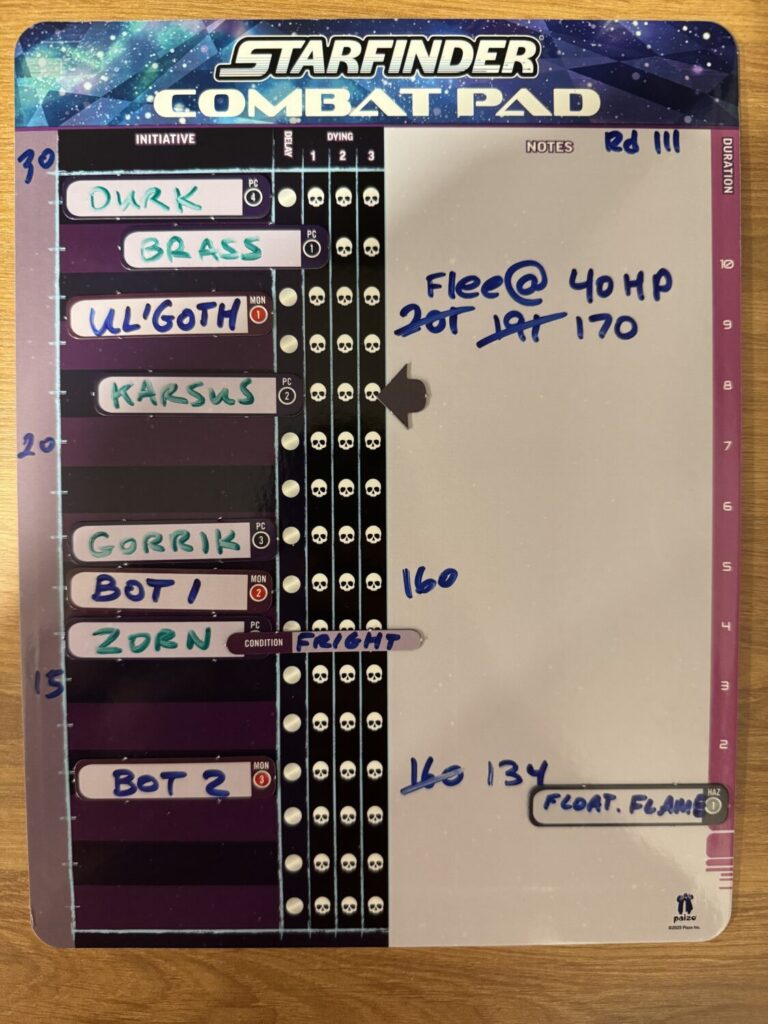 STARFINDER
COMBAT PAD
INITIATIVE
DELAY
DYING
1 2 3
NOTES
Rd III
DURATION
30
DURK PC 4
BRASS PC 1
10
Flee@ 40HP
UL'GOTH MON 1
201 191 170
9
KARSUS PC 2
8
20
7
6
GORRIK PC 3
BOT 1 MON 2
160
5
ZORN PC
CONDITION FRIGHT
4
15
3
2
BOT 2 MON 3
160 134
FLOAT. FLAME HAZ 1
paizo
©2025 Paizo Inc.